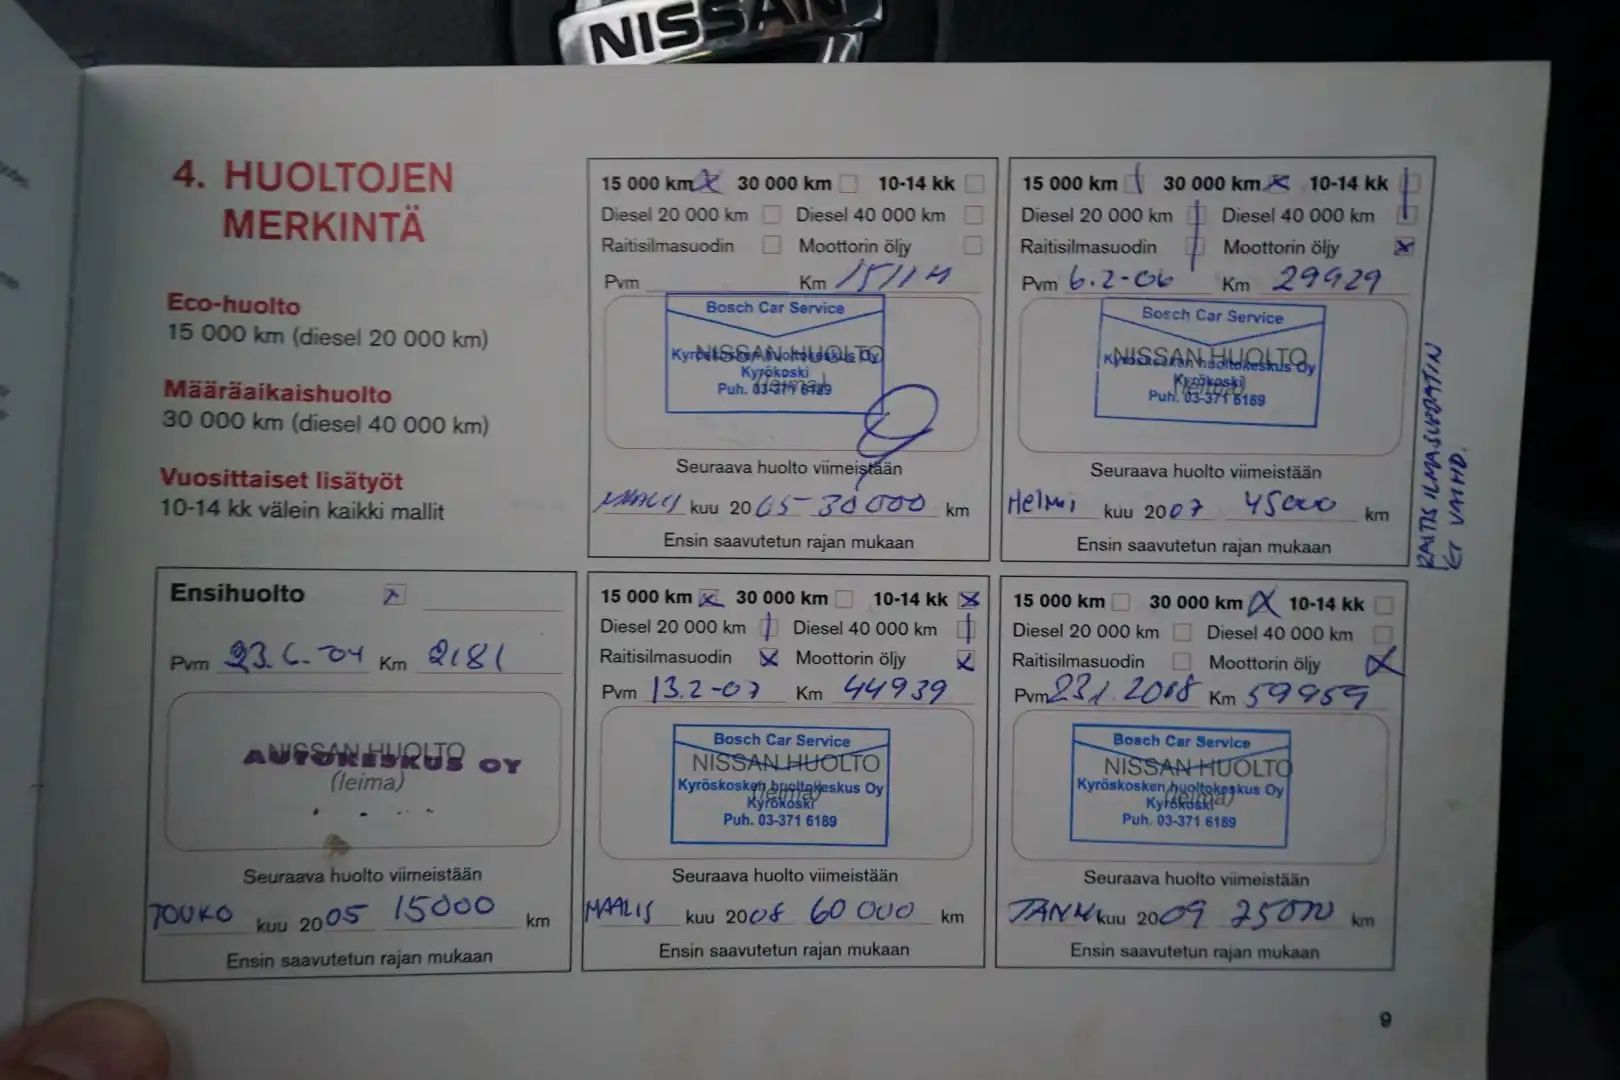 NISSAN
4. HUOLTOJEN
MERKINTÄ
Eco-huolto
15 000 km (diesel 20 000 km)
Määräaikaishuolto
30 000 km (diesel 40 000 km)
Vuosittaiset lisätyöt
10-14 kk välein kaikki mallit
15 000 km 30 000 km 10-14 kk
Diesel 20 000 km Diesel 40 000 km
Raitisilmasuodin Moottorin öljy
Pvm Km 15114
Bosch Car Service
NISSAN HUOLTO
Kyröskosken huoltokeskus Oy
Kyrökoski
(leima)
Puh. 03-371 6189
Seuraava huolto viimeistään
MAALIS kuu 2005 - 30000 km
Ensin saavutetun rajan mukaan
15 000 km 30 000 km 10-14 kk
Diesel 20 000 km Diesel 40 000 km
Raitisilmasuodin Moottorin öljy
Pvm 6.2-06 Km 29929
Bosch Car Service
NISSAN HUOLTO
Kyröskosken huoltokeskus Oy
Kyrökoski
(leima)
Puh. 03-371 6189
Seuraava huolto viimeistään
HELMI kuu 2007 45000 km
Ensin saavutetun rajan mukaan
RAITIS ILMASUODATIN
EI VAIHD.
Ensihuolto
Pvm 23.6.-04 Km 2181
NISSAN HUOLTO
AUTOKESKUS OY
(leima)
Seuraava huolto viimeistään
TOUKO kuu 2005 15000 km
Ensin saavutetun rajan mukaan
15 000 km 30 000 km 10-14 kk
Diesel 20 000 km Diesel 40 000 km
Raitisilmasuodin Moottorin öljy
Pvm 13.2-07 Km 44939
Bosch Car Service
NISSAN HUOLTO
Kyröskosken huoltokeskus Oy
(leima)
Kyrökoski
Puh. 03-371 6189
Seuraava huolto viimeistään
MAALIS kuu 2008 60000 km
Ensin saavutetun rajan mukaan
15 000 km 30 000 km 10-14 kk
Diesel 20 000 km Diesel 40 000 km
Raitisilmasuodin Moottorin öljy
Pvm 23.1.2008 Km 59959
Bosch Car Service
NISSAN HUOLTO
Kyröskosken huoltokeskus Oy
(leima)
Kyrökoski
Puh. 03-371 6189
Seuraava huolto viimeistään
TAMMI kuu 2009 75000 km
Ensin saavutetun rajan mukaan
9